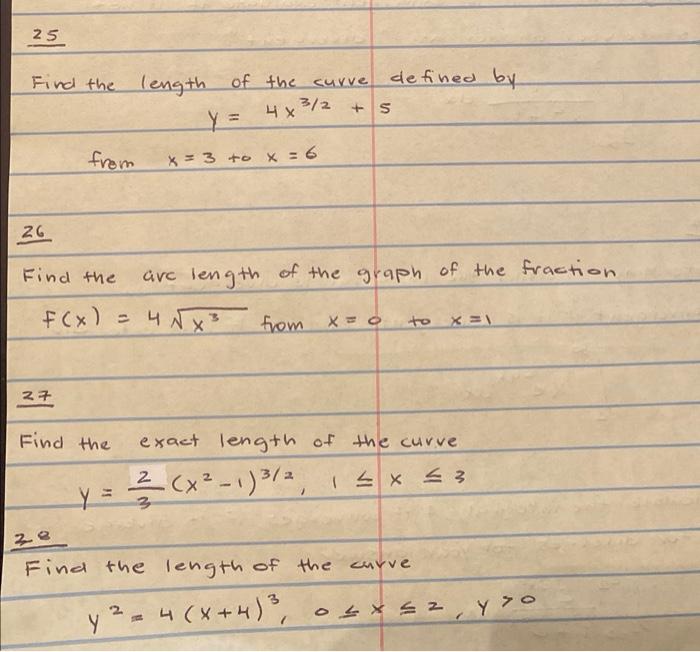 25
Find the length of the curve defined by
y = 4x^3/2 + 5
from x = 3 to x = 6
26
Find the arc length of the graph of the fraction
f(x) = 4√x³ from x = 0 to x = 1
27
Find the exact length of the curve
y = 2/3 (x² - 1)^3/2, 1 ≤ x ≤ 3
28
Find the length of the curve
y² = 4(x+4)³, 0 ≤ x ≤ 2, y > 0